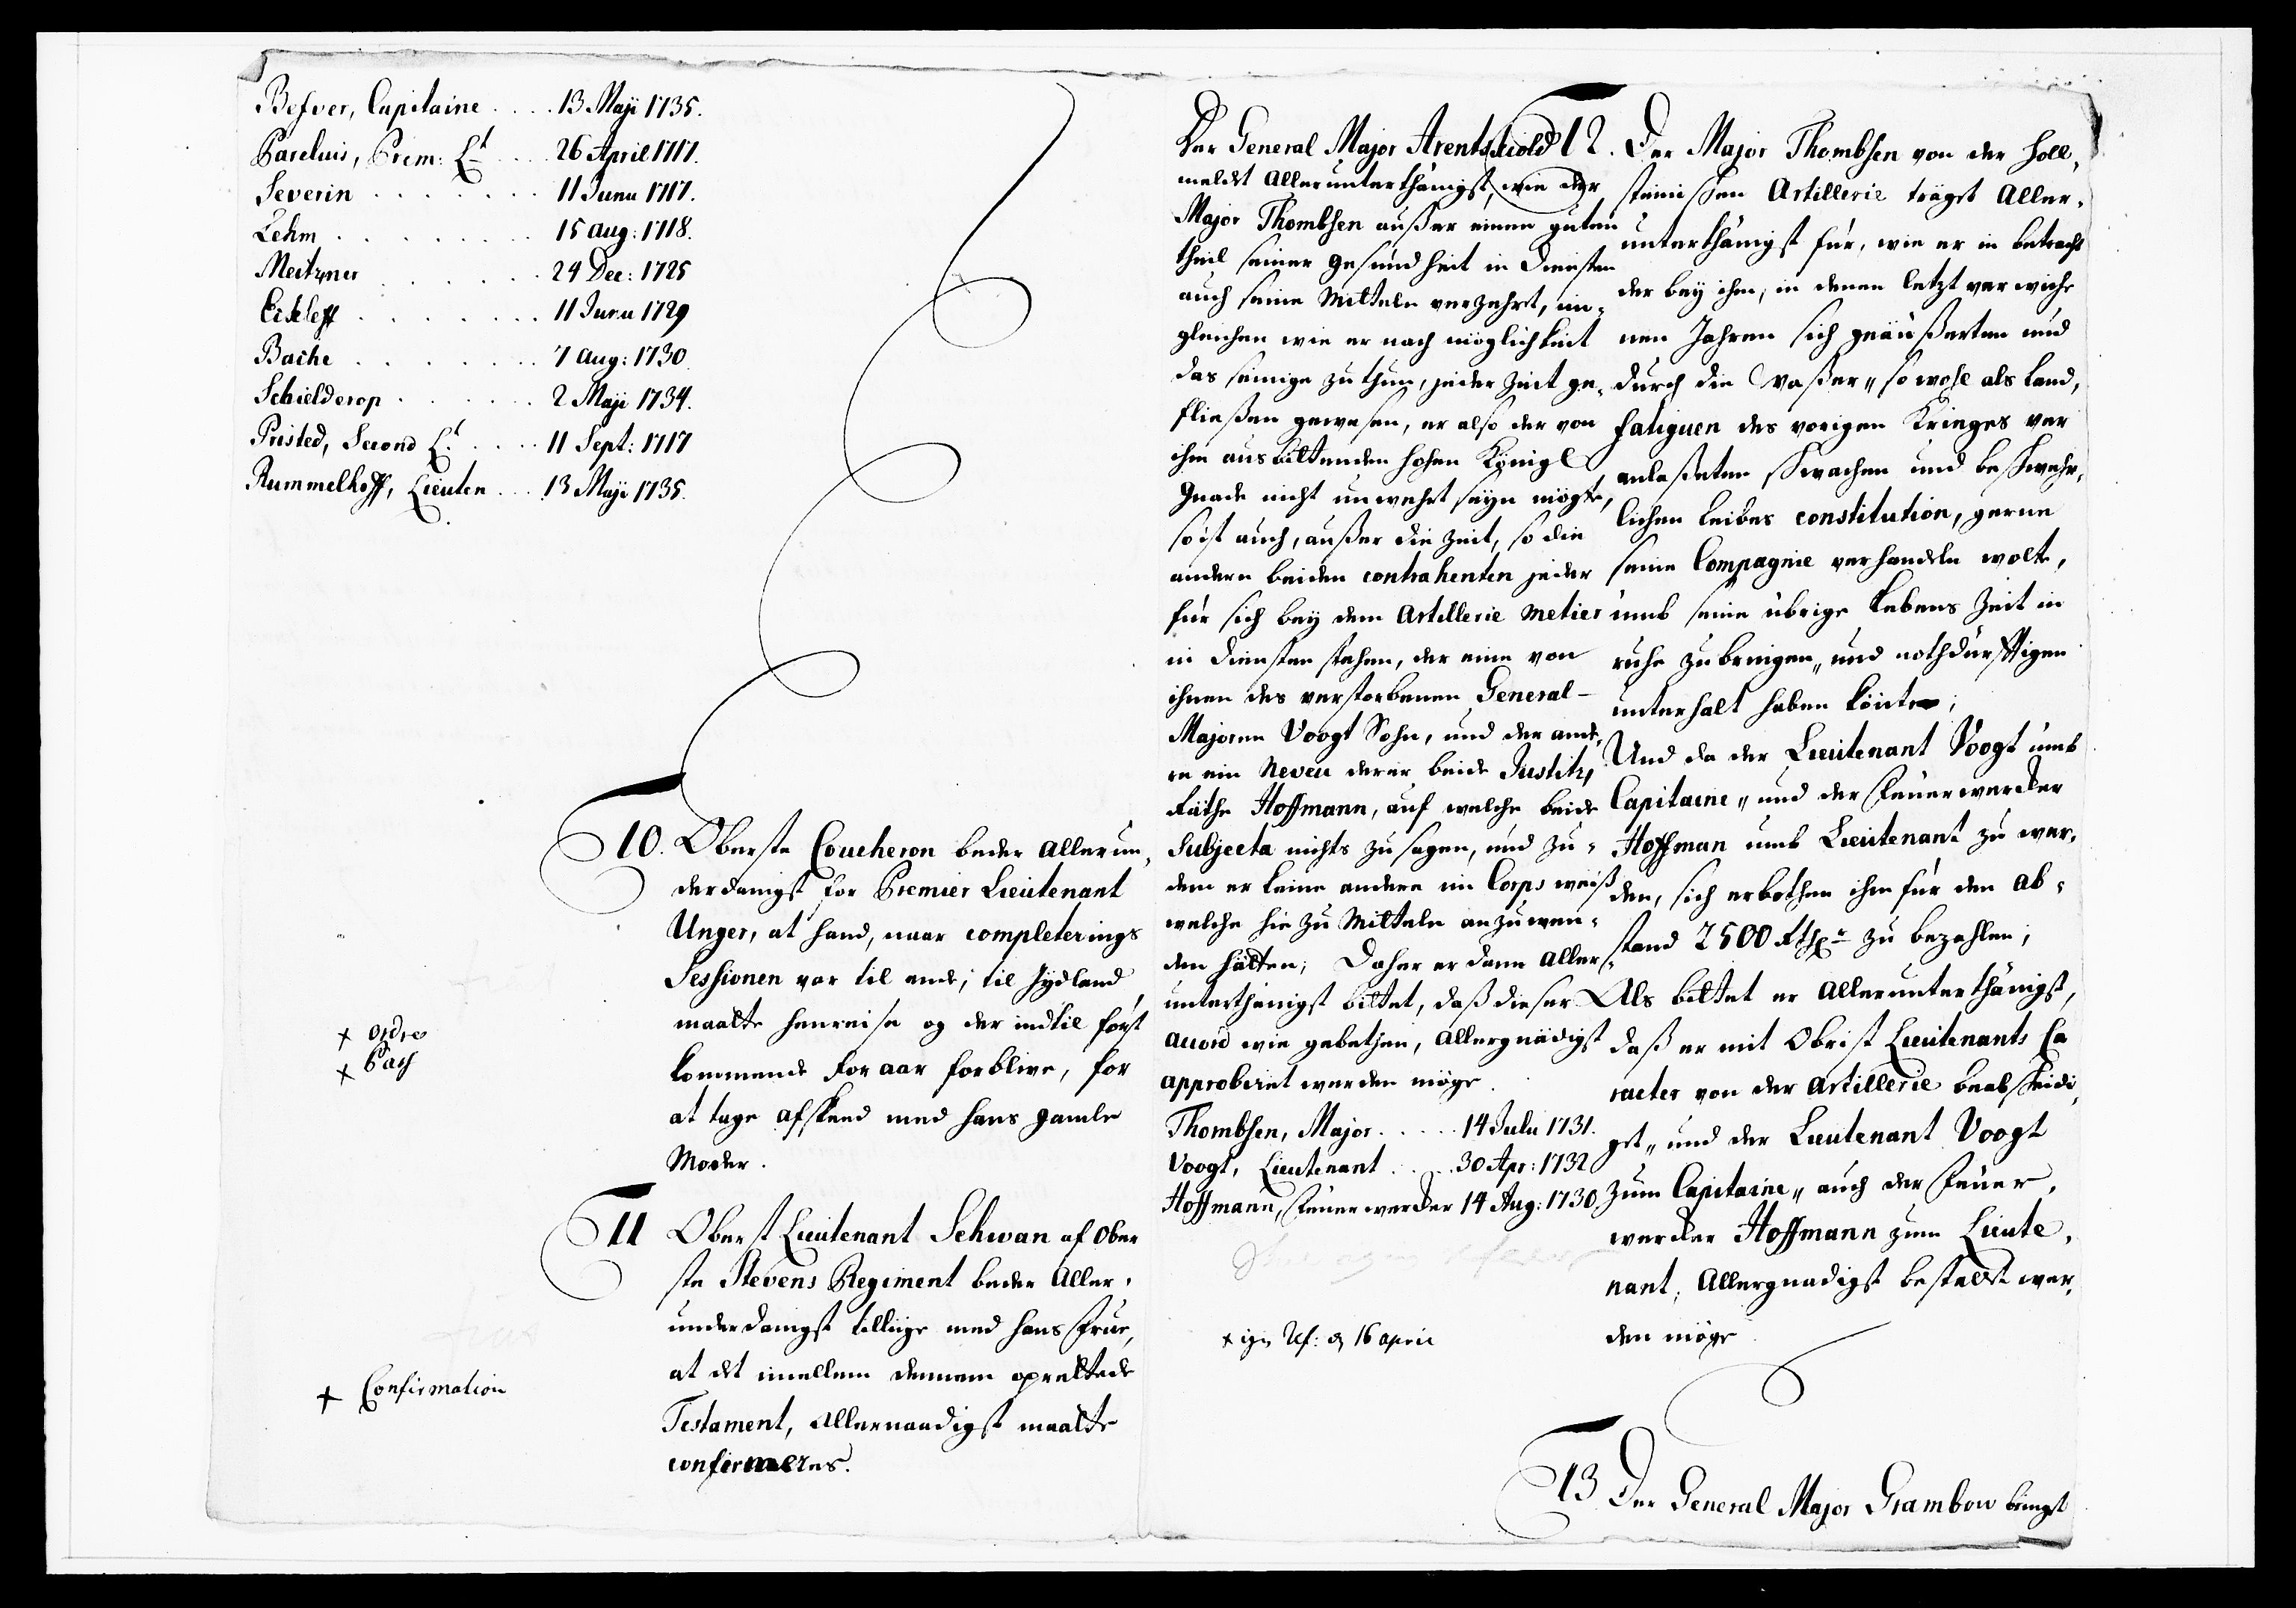 Befver, Capitaine . . . . 13 Maji 1735.
Pareluis, Prem: Lt . . . 26 April 1717.
Severin . . . . . . . 11 Junii 1717.
Lehm . . . . . . . 15 Aug: 1718.
Meitzner . . . . . . 24 Dec: 1725
Eickleff . . . . . . . 11 Junii 1729
Bache . . . . . . . 7 Aug: 1730.
Schielderop . . . . . . 2 Maji 1734.
Pristed, Second Lt . . . . 11 Sept: 1717
Rummelhoff, Lieuten . . . 13 Maji 1735.
10. Oberste Coucheron beder allerun-
derdanigst for Premier Lieutenant
Unger, at hand, naar completerings
Sessionen var til ende; til Jydland
maatte henreise og der indtil först
kommende Foraar forblive, for
at tage afskeed med hans gamle
Moder.
+ ordre
+ Pass
11 Oberst Lieutenant Schwan af Ober
ste Stevens Regiment beder Aller-
underdanigst tillige med hans Frue,
at det imellem dennem oprettede
Testament, allernaadigst maatte
confirmeres.
+ Confirmation
Der General Major Arentskiold
meldet allerunterthänigst, wie der
Major Thombsen außer einen guten
theil seiner gesundheit in Diensten
auch seine Mitteln verzehret, im-
gleichen wie er nach möglichkeit
das seinige zu thun, jeder Zeit ge-
fließen gewesen, er also der von
ihm ausbittenden hohen Königl
Gnade nicht unwehrt seyn mögte,
so ist auch, außer die Zeit, so die
andern beiden contrahenten jeder
für sich bey dem Artillerie metier
in Diensten stehen, der eine von
ihnen des verstorbenen General-
Majoren Voogt Sohn, und der ande-
re ein Neveu derer beide Justitz
Räthe Hoffmann, auf welche beide
Subjecta nichts zu sagen, und zu-
dem er keine andere im Corps weiß
welche hie zu Mitteln anzuwen-
den hätten; Daher er dann Aller-
unterthänigst bittet, daß dieser
accord wie gebethen, allergnädigst
approbiret werden möge.
Thombsen, Major . . . . . 14 Julii 1731.
Voogt, Lieutenant . . . 30 Apr: 1732
Hoffmann, Feuerwercker 14 Aug: 1730.
16 April
12. Der Major Thombsen von der Holl-
steinischen Artillerie träget Aller-
unterthänigst für, wie er in betracht
der bey ihm, in denen letzt verwiche
nen Jahren sich geäußerten und
durch die Waßer- sowohl als Land-
fatiguen des vorigen Krieges ver
anlaßeten schwachen und beschwehr-
lichen Leibes constitution, gerne
seine Compagnie verhandeln wolte,
umb seine übrige Lebens Zeit in
ruhe zubringen und nothdürfftigen
unterhalt haben könte;
Und da der Lieutenant Voogt umb
Capitaine und der Feuerwercker
Hoffman umb Lieutenant zu wer-
den, sich erbothen ihm für den ab-
stand 2500 Rthlr zu bezahlen;
Als bittet er Allerunterthänigst,
daß er mit Obrist Lieutenants Ca
racter von der Artillerie beabscheidi-
get, und der Lieutenant Voogt
zum Capitaine, auch der Feuer-
wercker Hoffmann zum Lieute-
nant, Allergnädigst bestellt wer-
den möge
13 Der General Major Grambow bringet